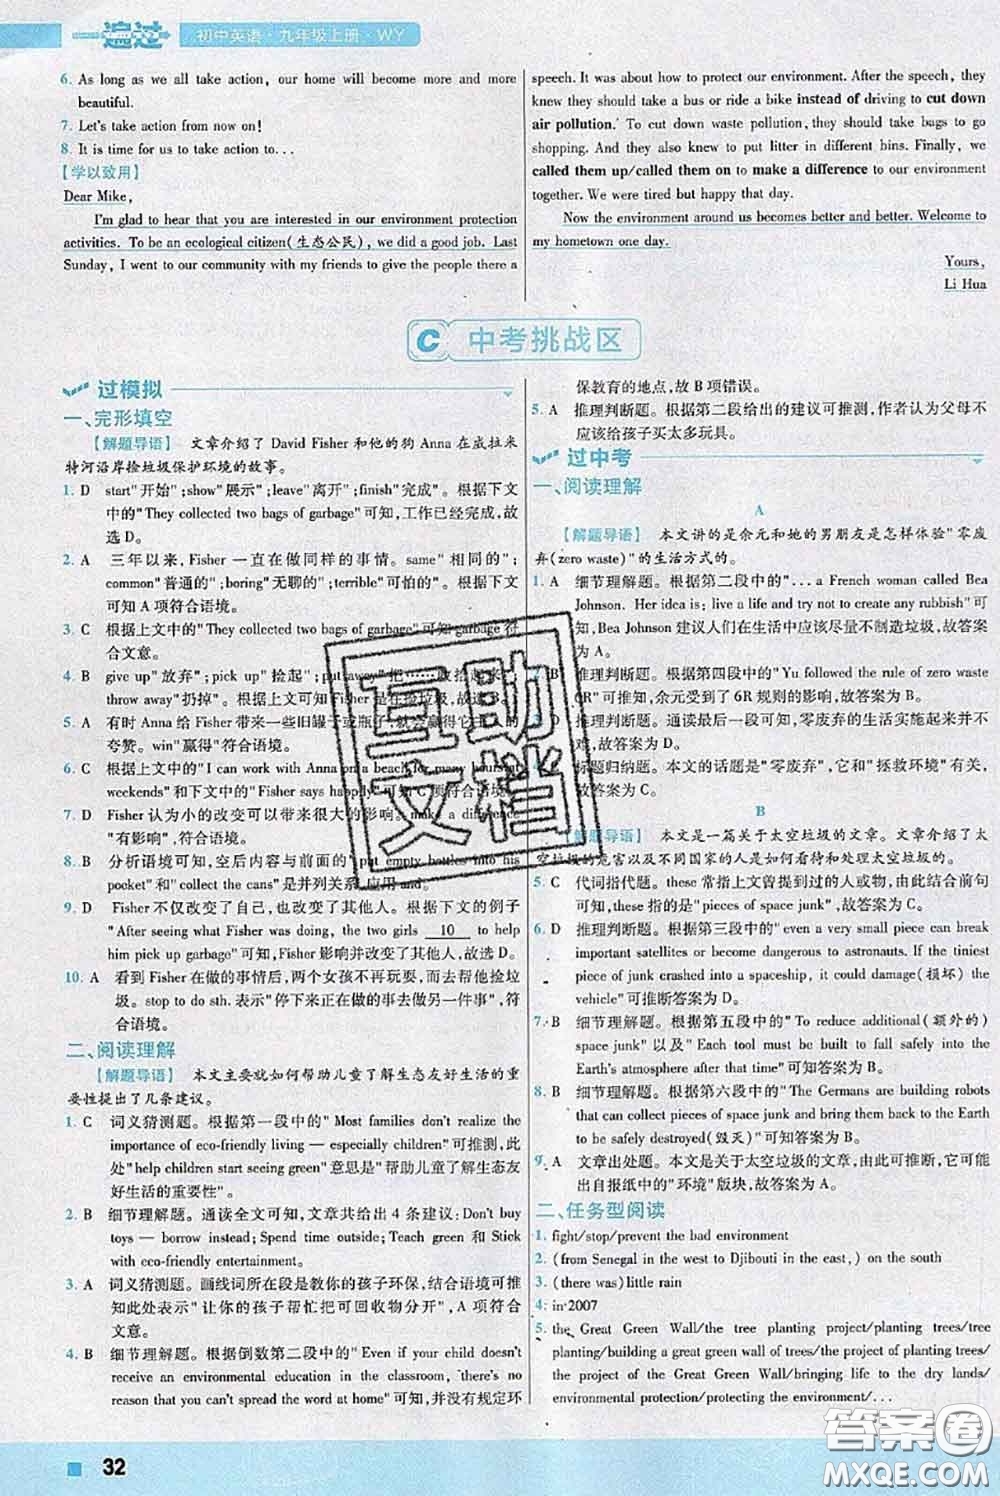 一遍过 初中英语·九年级上册·WY
6. As long as we all take action, our home will become more and more
beautiful.
7. Let's take action from now on!
8. It is time for us to take action to...
【学以致用】
Dear Mike,
I'm glad to hear that you are interested in our environment protection
activities. To be an ecological citizen(生态公民), we did a good job. Last
Sunday, I went to our community with my friends to give the people there a
speech. It was about how to protect our environment. After the speech, they
knew they should take a bus or ride a bike instead of driving to cut down
air pollution. To cut down waste pollution, they should take bags to go
shopping. And they also knew to put litter in different bins. Finally, we
called them up/called them on to make a difference to our environment
together. We were tired but happy that day.
Now the environment around us becomes better and better. Welcome to
my hometown one day.
Yours,
Li Hua
C 中考挑战区
过模拟
一、完形填空
【解题导语】 文章介绍了 David Fisher 和他的狗 Anna 在威拉米
特河沿岸捡垃圾保护环境的故事。
1. D start"开始";show"展示";leave"离开";finish"完成"。根据下文
中的"They collected two bags of garbage"可知,工作已经完成,故
选 D。
2. A 三年以来,Fisher 一直在做同样的事情。same"相同的";
common"普通的";boring"无聊的";terrible"可怕的"。根据下文
可知 A 项符合语境。
3. C 根据上文中的"They collected two bags of garbage"可知 garbage 符
合文意。
4. B give up"放弃";pick up"捡起";put away"把……收拾起来";
throw away"扔掉"。根据上文可知 Fisher 是在捡垃圾,故选 B。
5. A 有时 Anna 给 Fisher 带来一些旧罐子或瓶子,就会赢得它主人的
夸赞。win"赢得"符合语境。
6. C 根据上文中的"I can work with Anna on a beach for many hours at
weekends"和下文中的"Fisher says happily"可知 C 项符合语境。
7. D Fisher 认为小的改变可以带来很大的影响。make a difference
"有影响",符合语境。
8. B 分析语境可知,空后内容与前面的"put empty bottles into his
pocket"和"collect the cans"是并列关系,应用 and。
9. D Fisher 不仅改变了自己,也改变了其他人。根据下文的例子
"After seeing what Fisher was doing, the two girls 10 to help
him pick up garbage"可知,Fisher 影响并改变了其他人,故选 D。
10. A 看到 Fisher 在做的事情后,两个女孩不再玩耍,而是去帮他捡垃
圾。stop to do sth. 表示"停下来正在做的事去做另一件事",符
合语境。
二、阅读理解
【解题导语】 本文主要就如何帮助儿童了解生态友好生活的重
要性提出了几条建议。
1. C 词义猜测题。根据第一段中的"Most families don't realize the
importance of eco-friendly living — especially children"可推测,此
处"help children start seeing green"意思是"帮助儿童了解生态友
好生活的重要性"。
2. B 细节理解题。通读全文可知,文章共给出 4 条建议:Don't buy
toys — borrow instead; Spend time outside; Teach green 和 Stick
with eco-friendly entertainment。
3. A 词义猜测题。画线词所在段是教你的孩子环保,结合语境可推
知此处表示"让你的孩子帮忙把可回收物分开",A 项符合
文意。
4. B 细节理解题。根据倒数第二段中的"Even if your child doesn't
receive an environmental education in the classroom, there's no
reason you can't spread the word at home"可知,并没有规定环
保教育的地点,故 B 项错误。
5. A 推理判断题。根据第二段给出的建议可推测,作者认为父母不
应该给孩子买太多玩具。
过中考
一、阅读理解
A
【解题导语】 本文讲的是余元和她的男朋友是怎样体验"零废
弃(zero waste)"的生活方式的。
1. A 细节理解题。根据第二段中的"...a French woman called Bea
Johnson. Her idea is: live a life and try not to create any rubbish"可
知,Bea Johnson 建议人们在生活中应该尽量不制造垃圾,故答案
为 A。
2. B 推理判断题。根据第四段中的"Yu followed the rule of zero waste
6R"可推知,余元受到了 6R 规则的影响,故答案为 B。
3. D 推理判断题。通读最后一段可知,零废弃的生活实施起来并不
难,故答案为 D。
标题归纳题。本文的话题是"零废弃",它和"拯救环境"有关,
故答案为
B
【解题导语】 本文是一篇关于太空垃圾的文章。文章介绍了太
空垃圾的危害以及不同国家的人是如何看待和处理太空垃圾的。
5. C 代词指代题。these 常指上文曾提到过的人或物,由这句话前句
可知,these 指的是"pieces of space junk",故答案为 C。
6. D 推理判断题。根据第三段中的"even a very small piece can break
important satellites or become dangerous to astronauts. If the tiniest
piece of junk crashed into a spaceship, it could damage(损坏) the
vehicle"可推断答案为 D。
7. B 细节理解题。根据第五段中的"To reduce additional(额外的)
space junk"以及"Each tool must be built to fall safely into the
Earth's atmosphere after that time"可知答案为 B。
8. B 细节理解题。根据第六段中的"The Germans are building robots
that can collect pieces of space junk and bring them back to the Earth
to be safely destroyed(毁灭)"可知答案为 B。
9. A 文章出处题。本文是关于太空垃圾的文章,由此可推断,它可能
出自报纸中的"环境"版块,故答案为 A。
二、任务型阅读
1. fight/stop/prevent the bad environment
2. (from Senegal in the west to Djibouti in the east,) on the south
3. (there was)little rain
4. in 2007
5. the Great Green Wall/the tree planting project/planting trees/tree
planting/building a great green wall of trees/the project of planting trees/
the project of the Great Green Wall/bringing life to the dry lands/
environmental protection/protecting the environment/...
互助
文档
32
答案圈
MXQE.COM